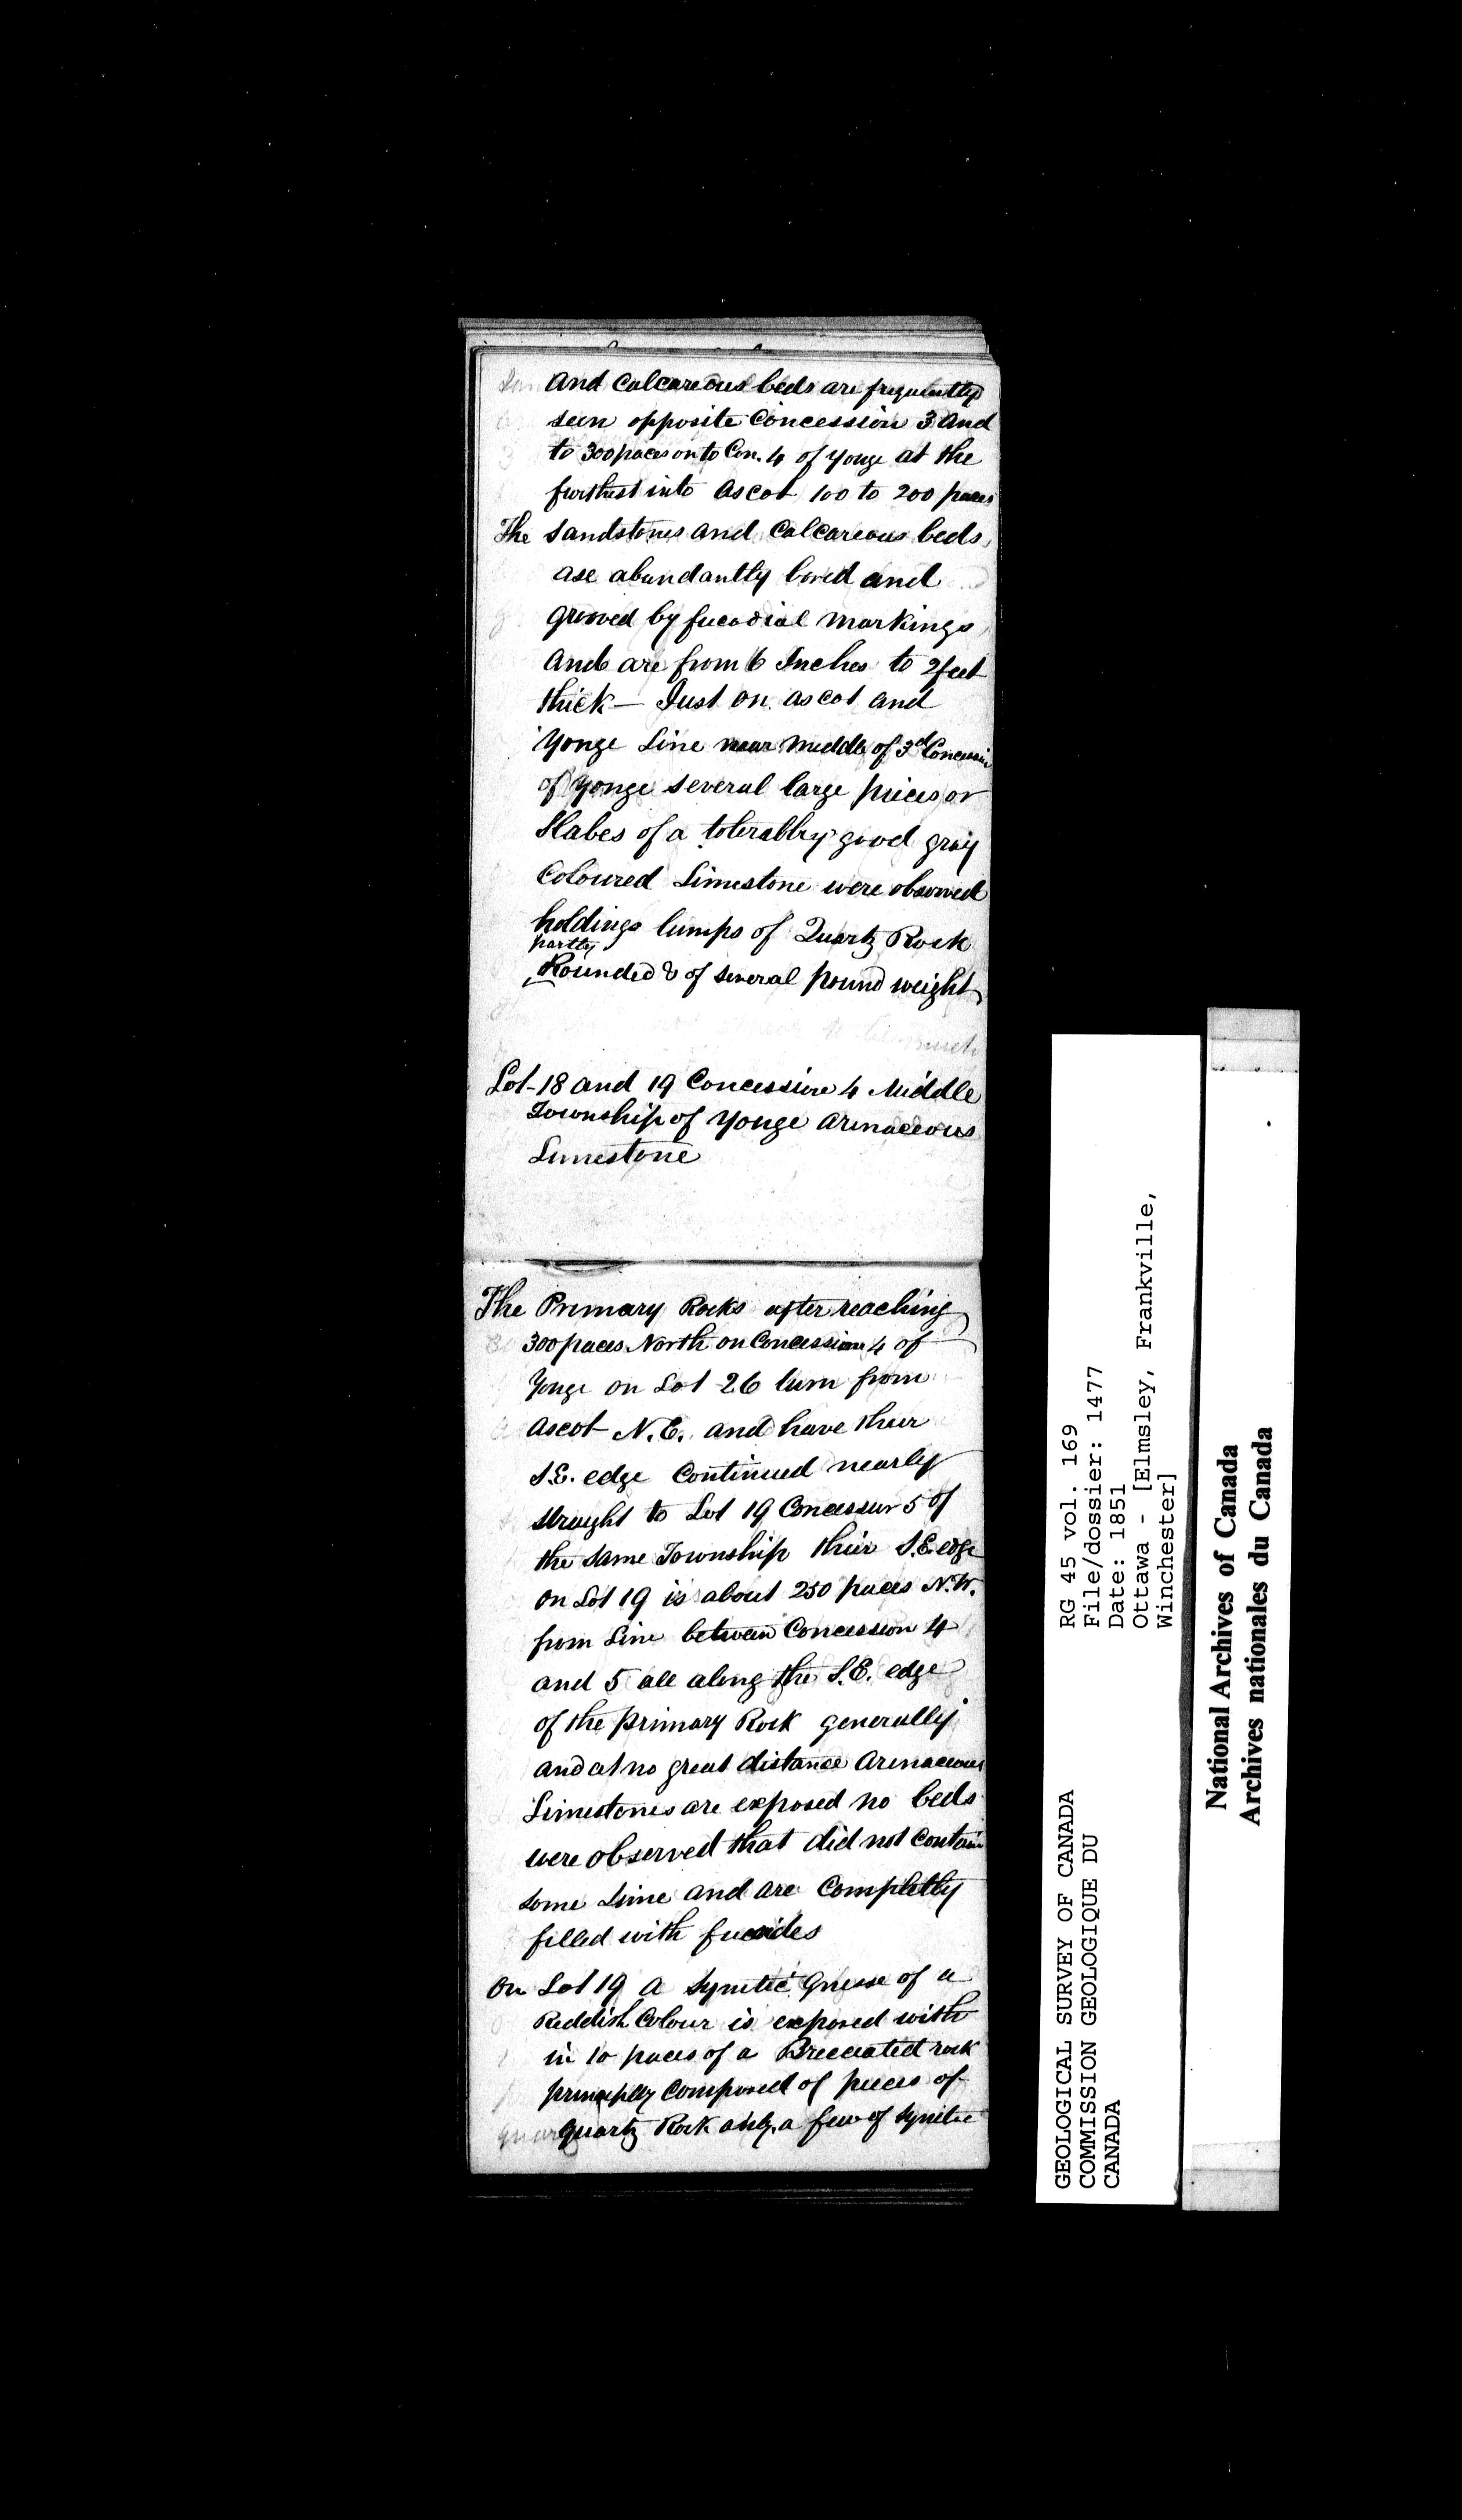 and Calcareous beds are frequently
seen opposite Concession 3 and
to 300 paces onto Con. 4 of Yonge at the
furthest into Ascot 100 to 200 paces
The Sandstones and Calcareous beds
are abundantly bored and
grooved by fucodial markings
and are from 6 Inches to 2 feet
thick — Just on Ascot and
Yonge Line near Middle of 3d Concession
of Yonge several large pieces or
Slabes of a tolerabley good gray
Coloured Limestone were observed
holdings lumps of Quartz Rock
partly
Rounded & of several pound weight
Lot 18 and 19 Concession 4 Middle
Township of Yonge Arenaceous
Limestone
The Primary Rocks after reaching
300 paces North on Concession 4 of
Yonge on Lot 26 turn from
Ascot N.E. and have their
S.E. edge Continued nearly
straight to Lot 19 Concession 5 of
the same Township their S.E. edge
on Lot 19 is about 250 paces N.W.
from Line between Concession 4
and 5 all along the S.E. edge
of the primary Rock generally
and at no great distance Arenaceous
Limestones are exposed no beds
were observed that did not Contain
some Lime and are Completly
filled with fucoides
On Lot 19 a Synitic Gneise of a
Reddish Colour is exposed with
in 10 paces of a Brecciated rock
principly Composed of pieces of
quartz Rock only a few of Synitic
RG 45 vol. 169
File/dossier: 1477
Date: 1851
Ottawa - [Elmsley, Frankville,
Winchester]
GEOLOGICAL SURVEY OF CANADA
COMMISSION GEOLOGIQUE DU
CANADA
National Archives of Canada
Archives nationales du Canada